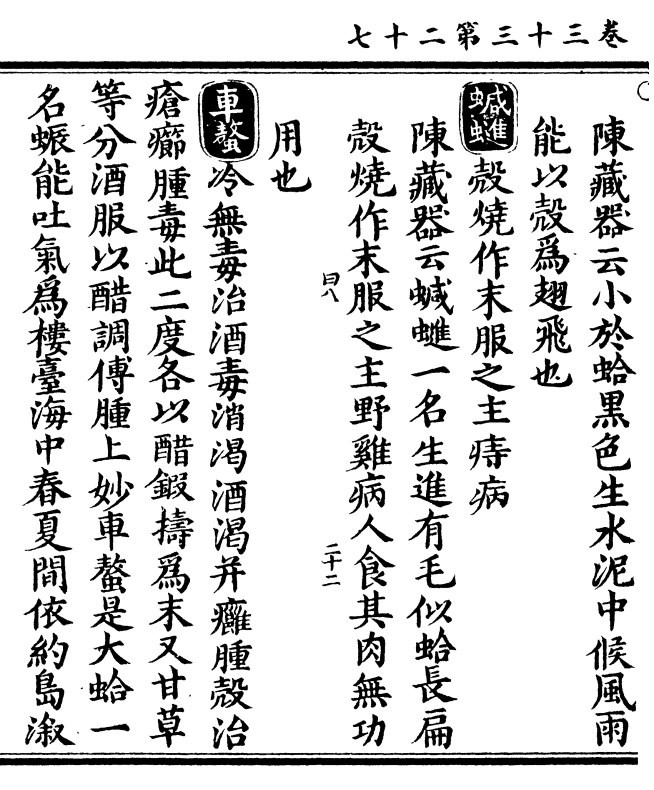 卷三十三第二十七
陳藏器云小於蛤黑色生水泥中候風雨
能以殼爲翅飛也
蝛䗯 殼燒作末服之主痔病
陳藏器云蝛䗯一名生進有毛似蛤長扁
殼燒作末服之主野雞病人食其肉無功
曰八
二十二
用也
車螯 冷無毒治酒毒消渴酒渴并癰腫殼治
瘡癤腫毒此二度各以醋鍜擣爲末又甘草
等分酒服以醋調傅腫上妙車螯是大蛤一
名蜄能吐氣爲樓臺海中春夏間依約島溆